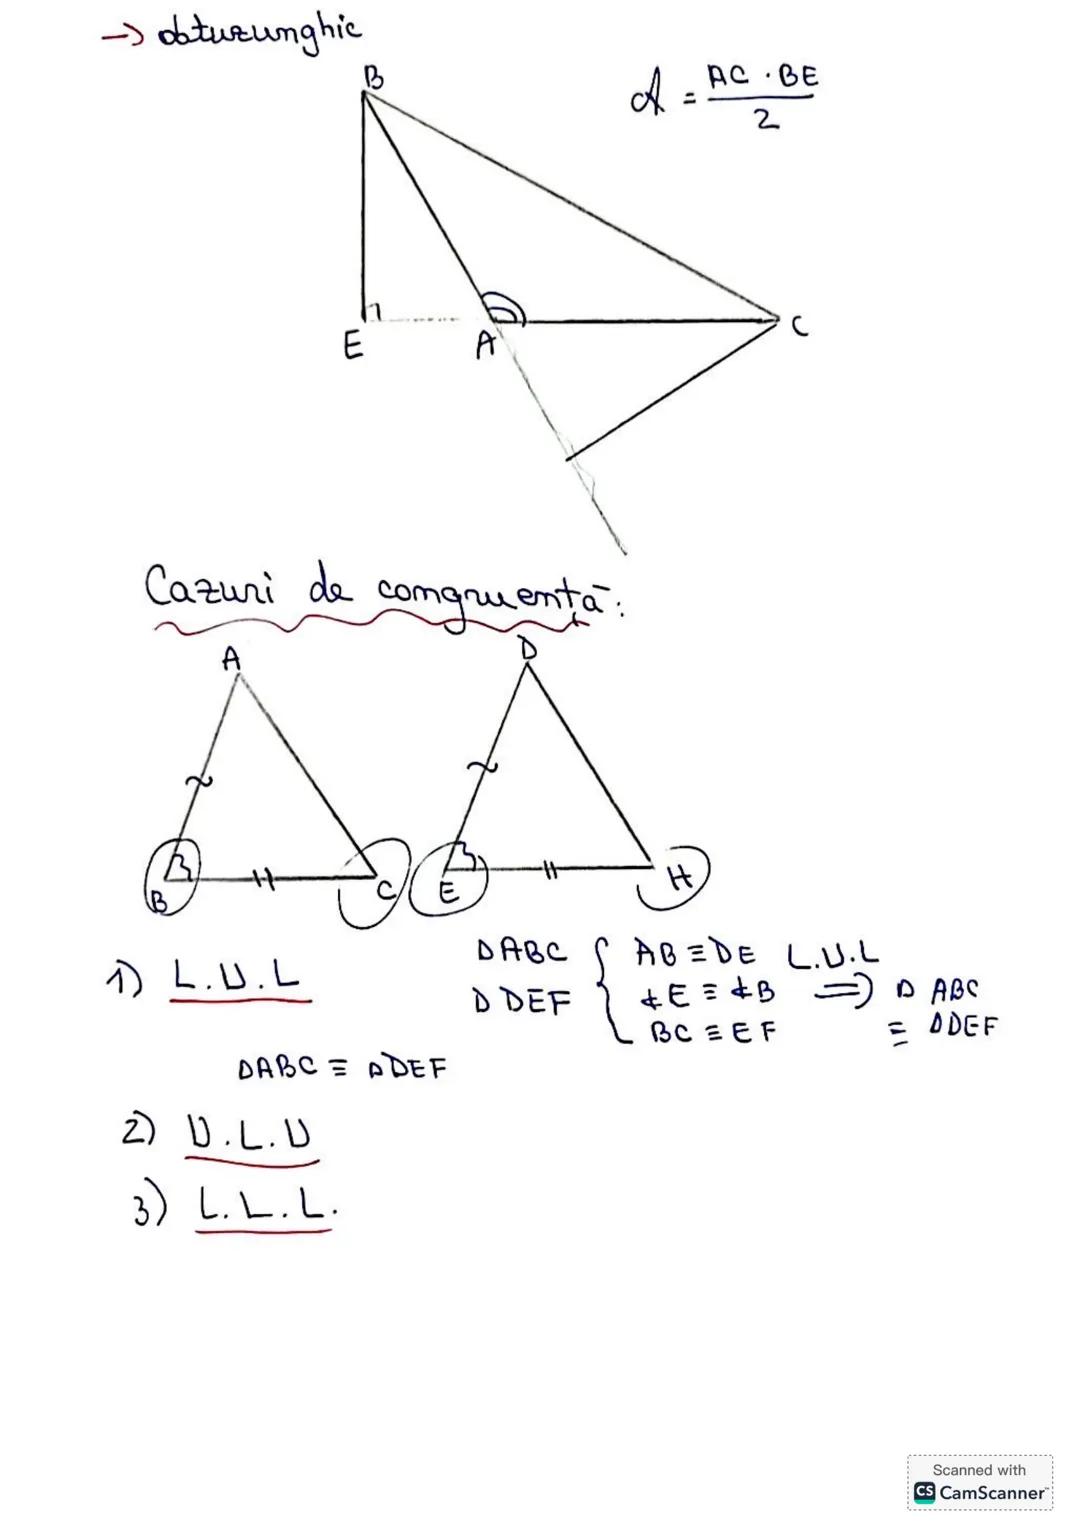 → obtuzunghic
B
A = AC · BE / 2
E
A
C
Cazuri de congruență:
A
D
B
C
E
H
1) L.U.L
ΔABC { AB ≡ DE L.U.L
ΔDEF ∢E ≡ ∢B ⇒ Δ ABC
BC ≡ EF ≡ ΔDEF
ΔABC ≡ ΔDEF
2) U.L.U
3) L.L.L.
Scanned with
CS CamScanner